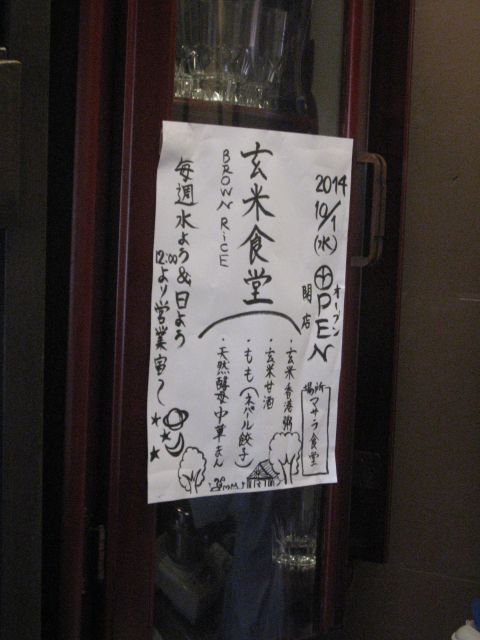 2014
10/1(水)
OPEN
オープン
開店
場所
マサラ食堂
玄米食堂
BROWN RICE
・玄米香港粥
・玄米甘酒
・もも(ネパール餃子)
・天然酵母中華まん
毎週水よう&日よう
12:00より営業